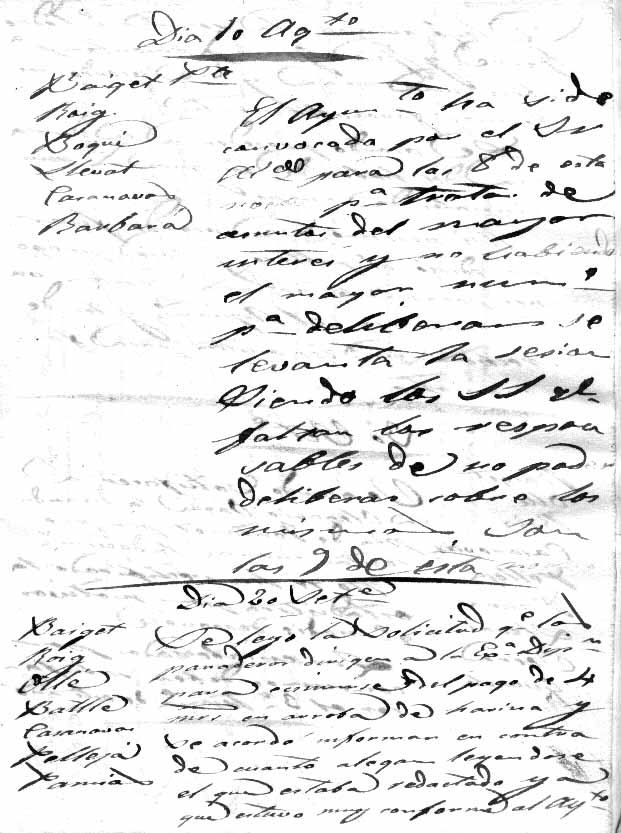 Dia 10 Agto
Baiget Pte
Roig
Boqué
Llevat
Casanovas
Barbará
El Ayunto ha sido
convocado por el Sr
Alcde para las 8 de esta
noche pa tratar de
asuntos del mayor
interes y no habiendo
el mayor numo
pa deliberar se
levanta la sesion
Siendo los SS qe
faltan los respon
sables de no poder
deliberar sobre los
mismos Son
las 9 de esta
Dia 20 Sete
Baiget
Roig
Ollé
Batlle
Casanovas
Pellejá
Pamias
Se leyo la solicitud qe los
panaderos dirigen a la Exa Dipn
para eximirse del pago de 4
mrs en arroba de harina y
se acordó informar en contra
de cuanto alegan leyendose
el que estaba redactado y a
que estuvo muy conforme al Ayto